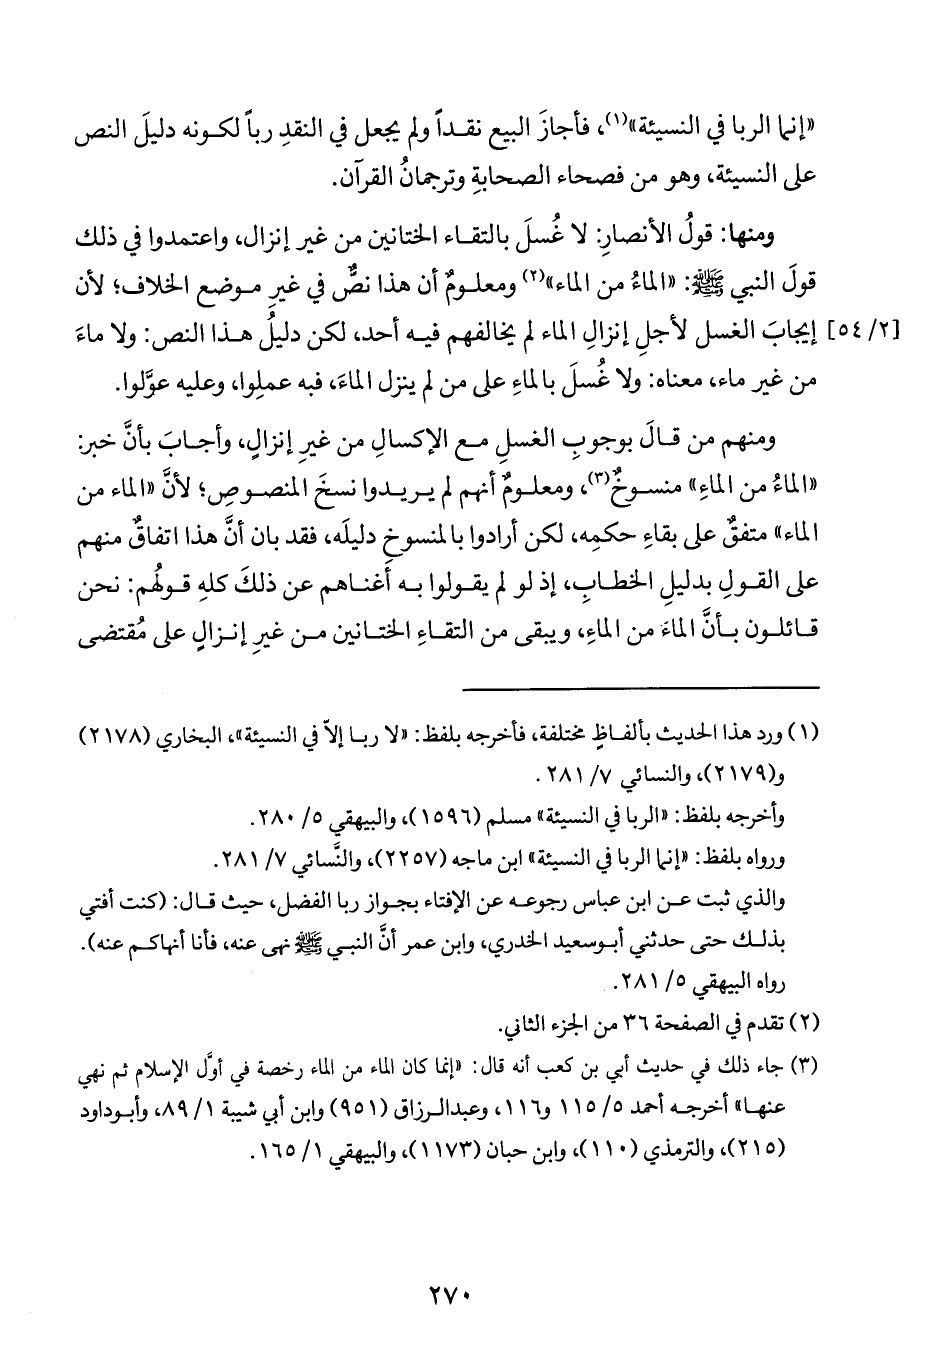 «إنما الربا في النسيئة»(١)، فأجازَ البيع نقداً ولم يجعل في النقدِ رباً لكونه دليلَ النص
على النسيئة، وهو من فصحاء الصحابةِ وترجمانُ القرآن.
ومنها: قولُ الأنصارِ: لا غُسلَ بالتقاء الختانين من غير إنزال، واعتمدوا في ذلك
قولَ النبي ﷺ: «الماءُ من الماء»(٢) ومعلومٌ أن هذا نصٌّ في غيرِ موضع الخلاف؛ لأن
[٢/ ٥٤] إيجابَ الغسل لأجلِ إنزالِ الماء لم يخالفهم فيه أحد، لكن دليلُ هذا النص: ولا ماءَ
من غير ماء، معناه: ولا غُسلَ بالماءِ على من لم ينزل الماءَ، فبه عملوا، وعليه عوَّلوا.
ومنهم من قالَ بوجوبِ الغسلِ مع الإكسالِ من غيرِ إنزالٍ، وأجابَ بأنَّ خبر:
«الماءُ من الماءِ» منسوخٌ(٣)، ومعلومٌ أنهم لم يريدوا نسخَ المنصوصِ؛ لأنَّ «الماء من
الماء» متفقٌ على بقاءِ حكمِه، لكن أرادوا بالمنسوخِ دليلَه، فقد بان أنَّ هذا اتفاقٌ منهم
على القولِ بدليلِ الخطاب، إذ لو لم يقولوا به أغناهم عن ذلكَ كلهِ قولُهم: نحن
قائلون بأنَّ الماءَ من الماءِ، ويبقى من التقاءِ الختانين من غيرِ إنزالٍ على مُقتضى
(١) ورد هذا الحديث بألفاظٍ مختلفة، فأخرجه بلفظ: «لا ربا إلاّ في النسيئة»، البخاري (٢١٧٨)
و(٢١٧٩)، والنسائي ٧/ ٢٨١.
وأخرجه بلفظ: «الربا في النسيئة» مسلم (١٥٩٦)، والبيهقي ٥/ ٢٨٠.
ورواه بلفظ: «إنما الربا في النسيئة» ابن ماجه (٢٢٥٧)، والنَّسائي ٧/ ٢٨١.
والذي ثبت عن ابن عباس رجوعه عن الإفتاء بجواز ربا الفضل، حيث قال: (كنت أفتي
بذلك حتى حدثني أبوسعيد الخدري، وابن عمر أنَّ النبي ﷺ نهى عنه، فأنا أنهاكم عنه).
رواه البيهقي ٥/ ٢٨١.
(٢) تقدم في الصفحة ٣٦ من الجزء الثاني.
(٣) جاء ذلك في حديث أبي بن كعب أنه قال: «إنما كان الماء من الماء رخصة في أوَّل الإسلام ثم نهي
عنها» أخرجه أحمد ٥/ ١١٥ و١١٦، وعبدالرزاق (٩٥١) وابن أبي شيبة ١/ ٨٩، وأبوداود
(٢١٥)، والترمذي (١١٠)، وابن حبان (١١٧٣)، والبيهقي ١/ ١٦٥.
٢٧٠